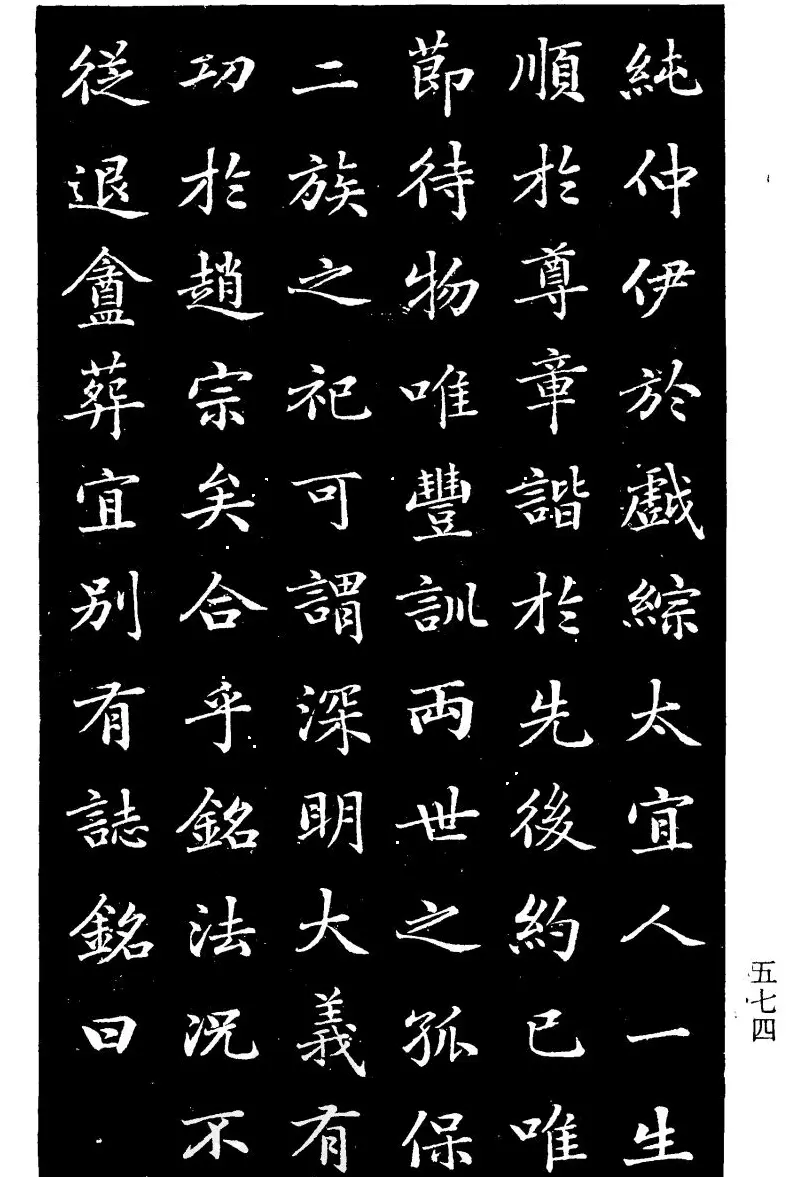 純仲伊於戲綜太宜人一生
順於尊章諧於先後約已唯
莭待物唯豐訓両世之孤保
二族之祀可謂深明大義有
功於趙宗矣合乎銘法況不
從退盦葬宜別有誌銘曰
五七四